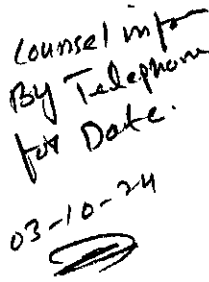 Counsel info
By Telephone
for Date.
03-10-24